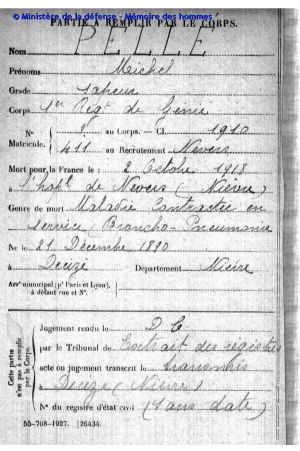 © Ministère de la défense - Mémoire des hommes
PARTIE A REMPLIR PAR LE CORPS.
Nom PELLÉ
Prénoms Michel
Grade Sapeur
Corps 1er Régt de Génie
N° 8 au Corps. — Cl. 1910
Matricule. 411 au Recrutement Nevers
Mort pour la France le 2 Octobre 1918
à l'hopl de Nevers (Nièvre)
Genre de mort Maladie Contractée en
Service (Broncho-Pneumonie
Né le 21 Décembre 1890
à Decize Département Nièvre
Arrt municipal (pr Paris et Lyon),
à défaut rue et N°.
Cette partie
n'est pas à remplir
par le Corps.
Jugement rendu le D C
par le Tribunal de Extrait des registres
acte ou jugement transcrit le transmis
à Decize (Nièvre)
N° du registre d'état civil (Sans date)
55-708-1927. [26434.]